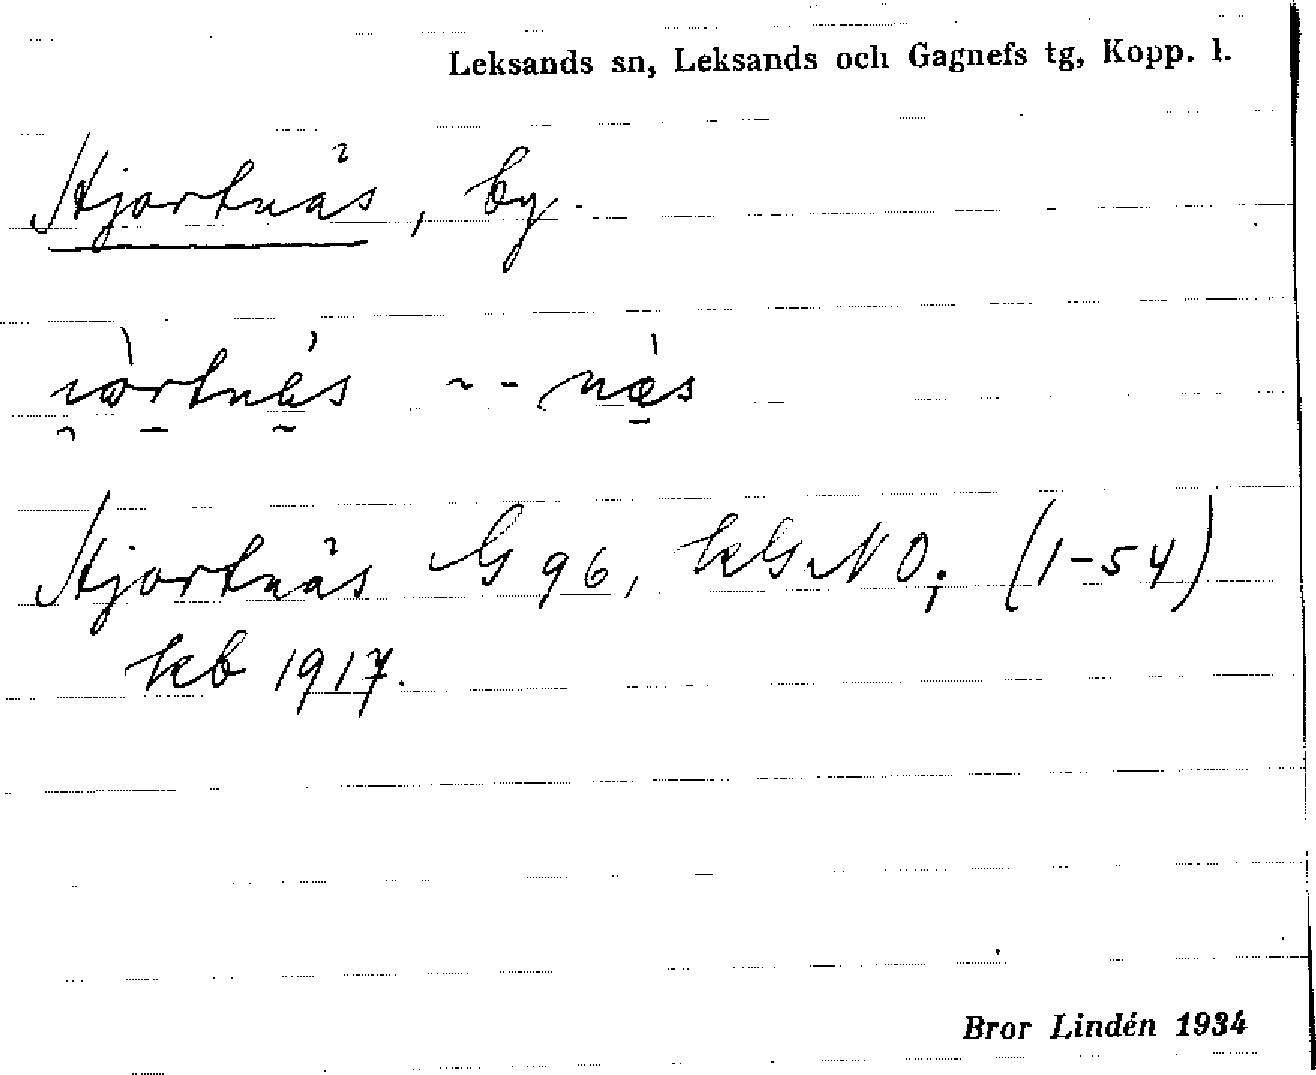 Leksands sn, Leksands och Gagnefs tg, Kopp. l.
Hjortnäs, by.
-- næs
Hjortnäs G 96, kGNO; (1-54)
kb 1917.
Bror Lindén 1934